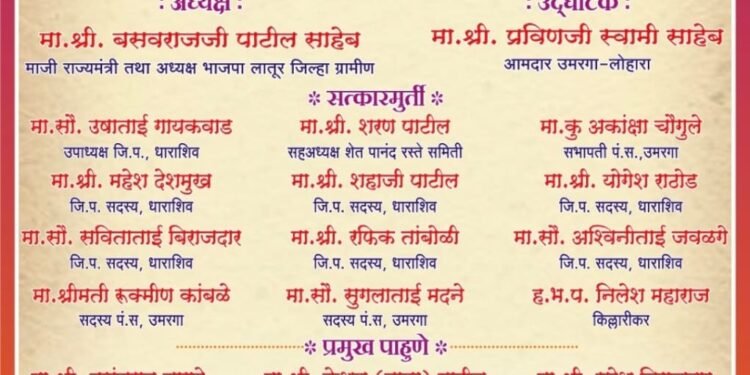 : अध्यक्ष :
: उद्घाटक :
मा.श्री. बसवराजजी पाटील साहेब
मा.श्री. प्रविणजी स्वामी साहेब
माजी राज्यमंत्री तथा अध्यक्ष भाजपा लातूर जिल्हा ग्रामीण
आमदार उमरगा-लोहारा
* सत्कारमुर्ती *
मा.सौ. उषाताई गायकवाड
मा.श्री. शरण पाटील
मा.कु अकांक्षा चौगुले
उपाध्यक्ष जि.प., धाराशिव
सहअध्यक्ष शेत पानंद रस्ते समिती
सभापती पं.स.,उमरगा
मा.श्री. महेश देशमुख
मा.श्री. शहाजी पाटील
मा.श्री. योगेश राठोड
जि.प. सदस्य, धाराशिव
जि.प. सदस्य, धाराशिव
जि.प. सदस्य, धाराशिव
मा.सौ. सविताताई बिराजदार
मा.श्री. रफिक तांबोळी
मा.सौ. अश्विनीताई जवळगे
जि.प. सदस्य, धाराशिव
जि.प. सदस्य, धाराशिव
जि.प. सदस्य, धाराशिव
मा.श्रीमती रूक्मीण कांबळे
मा.सौ. सुगलाताई मदने
ह.भ.प. निलेश महाराज
सदस्य पं.स, उमरगा
सदस्य पं.स, उमरगा
किल्लारीकर
* प्रमुख पाहुणे *